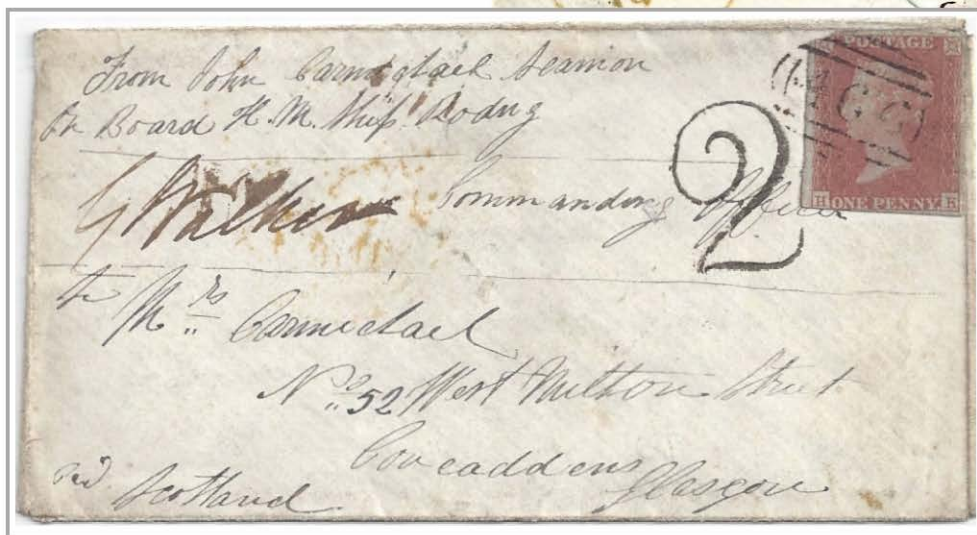 From John Carmichael Seaman
On Board H. M. Ship Rodny
G Walker Commanding Officer
2
POSTAGE
ONE PENNY
to Mrs Carmichael
No 52 West Milton Street
Coweaddens Glasgow
Scotland